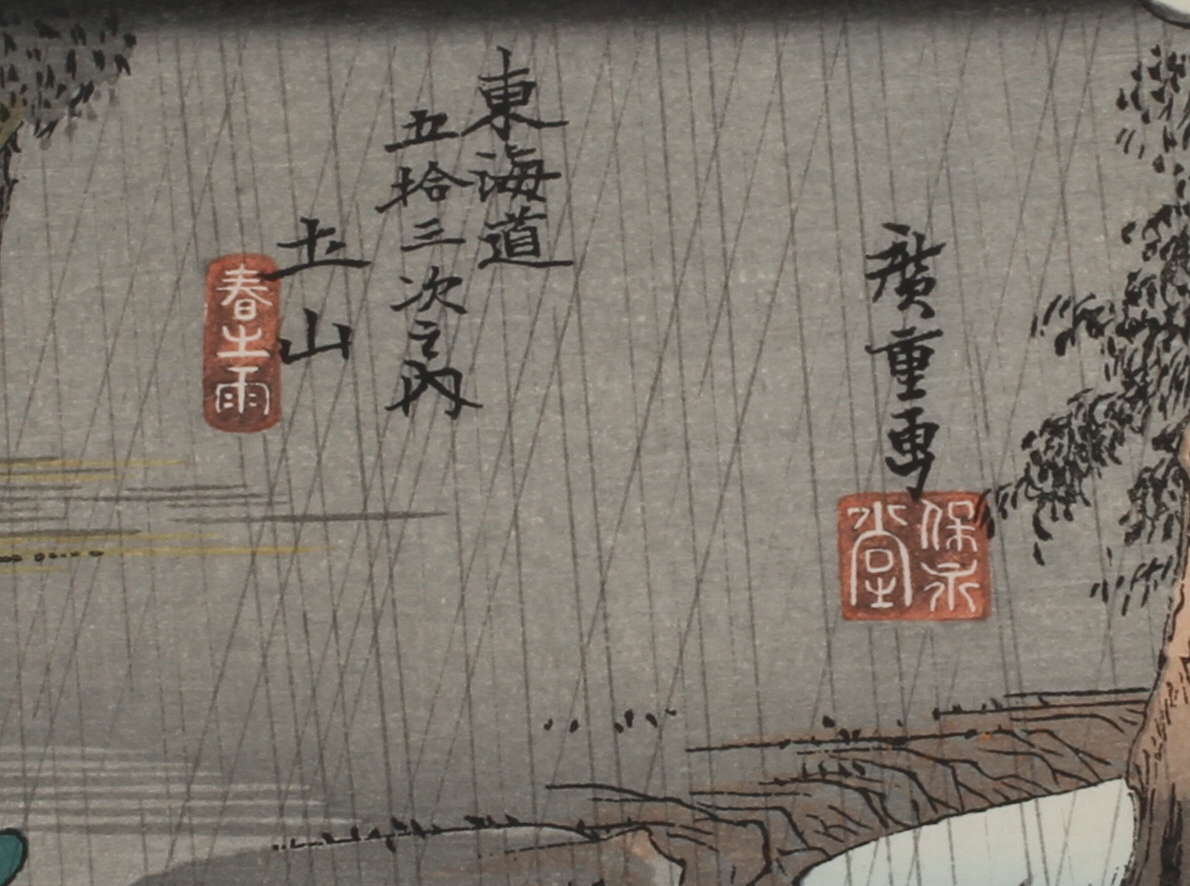 廣重画
保永
堂
東海道
五拾三次之内
圡山
春之雨